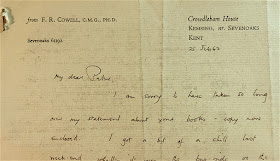 from F. R. COWELL, C.M.G., PH.D.
Sevenoaks 61192
Crowdleham House
KEMSING, NR. SEVENOAKS
KENT
My dear
I am sorry to have taken so long
over my statement about your books – copy now
enclosed. I got a bit of a chill last
week-end